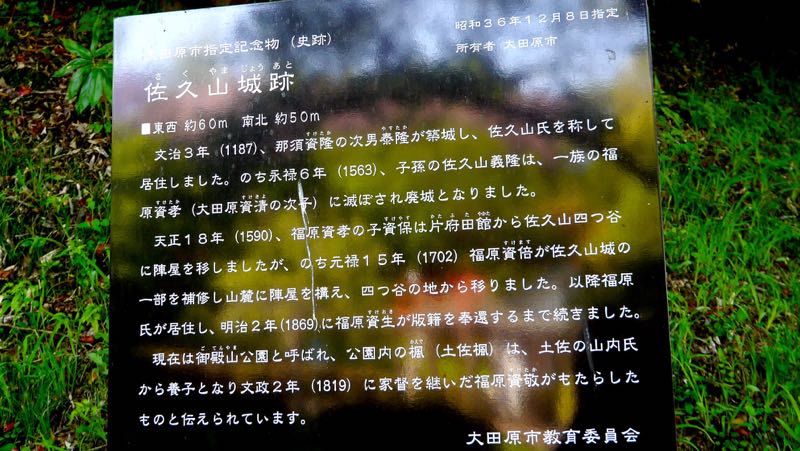 大田原市指定記念物（史跡）
昭和３６年１２月８日指定
所有者 大田原市
さくやまじょうあと
佐久山城跡
■東西 約６０ｍ 南北 約５０ｍ
文治３年（1187）、那須資隆の次男泰隆が築城し、佐久山氏を称して
居住しました。のち永禄６年（1563）、子孫の佐久山義隆は、一族の福
原資孝（大田原資清の次子）に滅ぼされ廃城となりました。
天正１８年（1590）、福原資孝の子資保は片府田館から佐久山四つ谷
に陣屋を移しましたが、のち元禄１５年（1702）福原資倍が佐久山城の
一部を補修し山麓に陣屋を構え、四つ谷の地から移りました。以降福原
氏が居住し、明治２年(1869)に福原資生が版籍を奉還するまで続きました。
現在は御殿山公園と呼ばれ、公園内の楓（土佐楓）は、土佐の山内氏
から養子となり文政２年（1819）に家督を継いだ福原資敬がもたらした
ものと伝えられています。
大田原市教育委員会